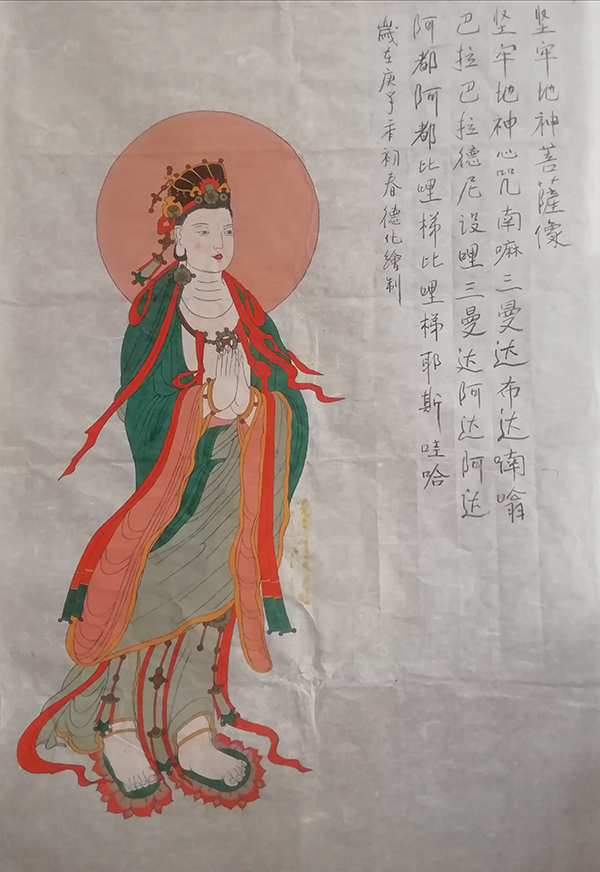 坚牢地神菩薩像
坚牢地神心咒南嘛三曼达布达喃嗡
巴拉巴拉德尼设哩三曼达阿达阿达
阿都阿都比哩梯比哩梯耶斯哇哈
歲在庚子年初春德化繪制